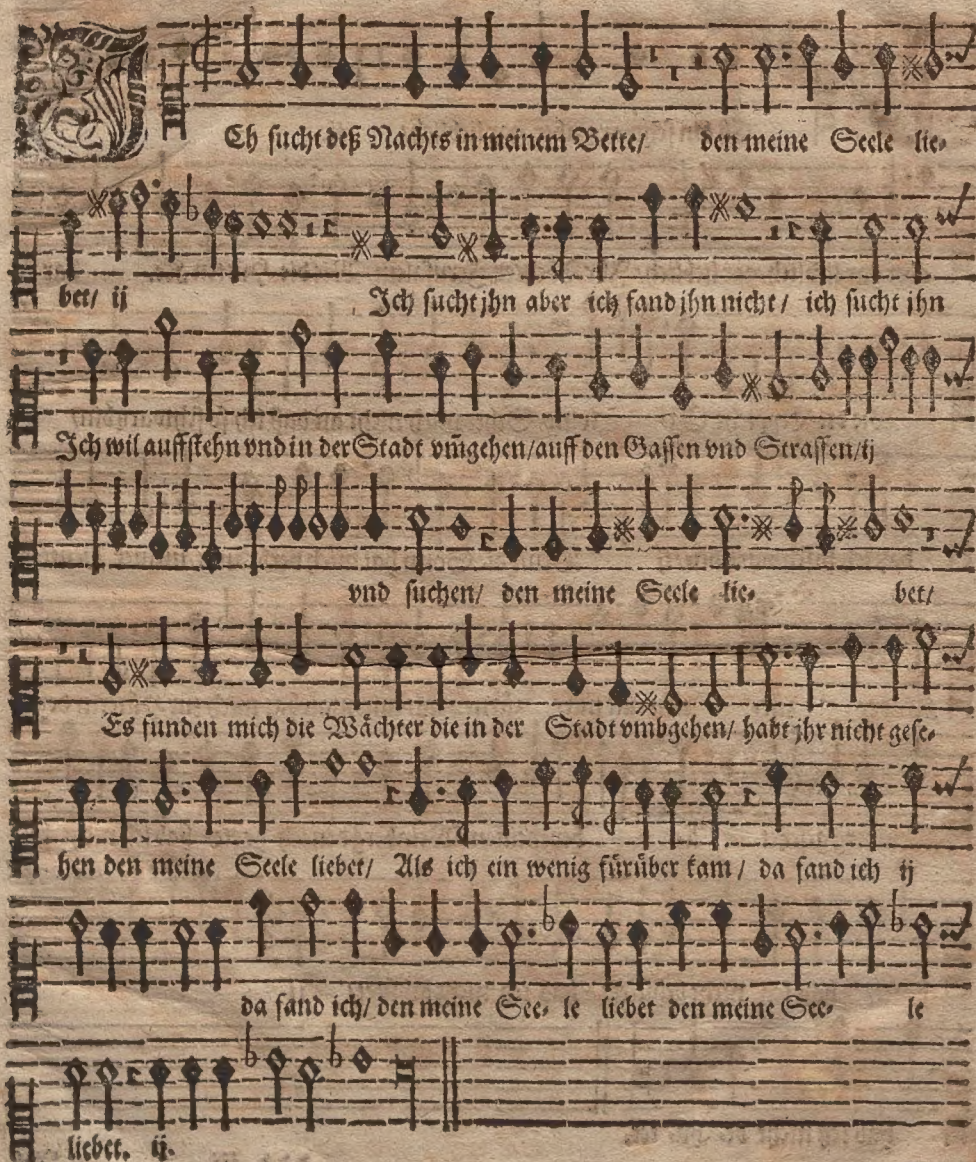 ICh sucht deß Nachts in meinem Bette/ den meine Seele lie-
bet/ ij Ich sucht jhn aber ich fand jhn nicht/ ich sucht jhn
Ich wil auffstehn vnd in der Stadt vm̃gehen/ auff den Gassen vnd Strassen/ ij
vnd suchen/ den meine Seele lie- bet/
Es funden mich die Wächter die in der Stadt vmbgehen/ habt jhr nicht gese-
hen den meine Seele liebet/ Als ich ein wenig fürüber kam/ da fand ich ij
da fand ich/ den meine See- le liebet den meine See- le
liebet. ij.